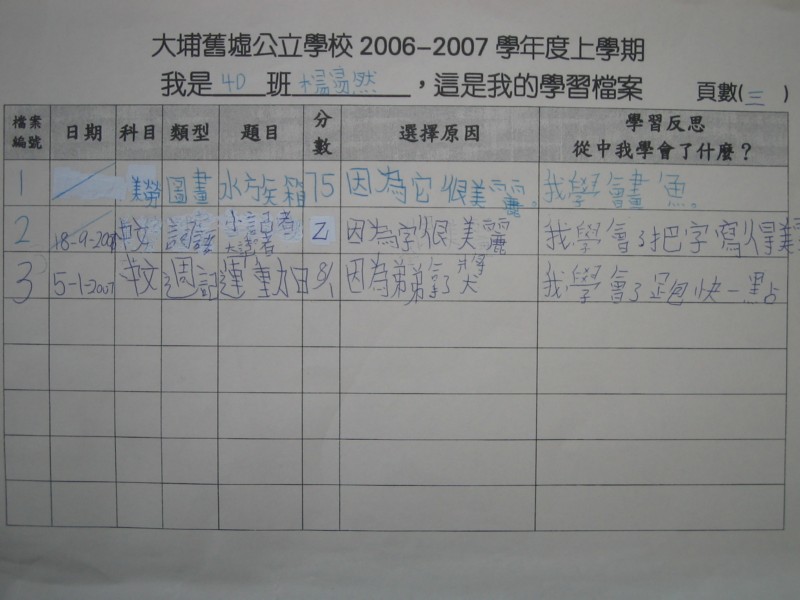 大埔舊墟公立學校 2006–2007 學年度上學期
我是 4D 班 楊易然 ，這是我的學習檔案 頁數(三 )
檔案編號 日期 科目 類型 題目 分數 選擇原因 學習反思 從中我學會了什麼？
1 美勞 圖畫 水族箱 75 因為它很美麗。 我學會畫魚。
2 18-9-2006 中文 小記者 乙 因為字很美麗 我學會了把字寫得美
3 5-1-2007 中文 週記 運動 因為弟弟拿了獎 我學會了跑快一點